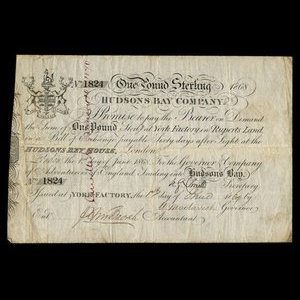 No 1824 One Pound Sterling 1868
HUDSONS BAY COMPANY
Promise to pay the Bearer on Demand
the Sum of One Pound Sterg at York Factory in Ruperts Land
Bill of Exchange payable Sixty days after Sight at the
HUDSONS BAY HOUSE, London
London the 1st of June 1868 For the Governor & Company
of Adventurers of England Trading into Hudsons Bay.
No 1824 Secretary
Issued at YORK FACTORY, the day of 1869 by
Governor
Entd Accountant